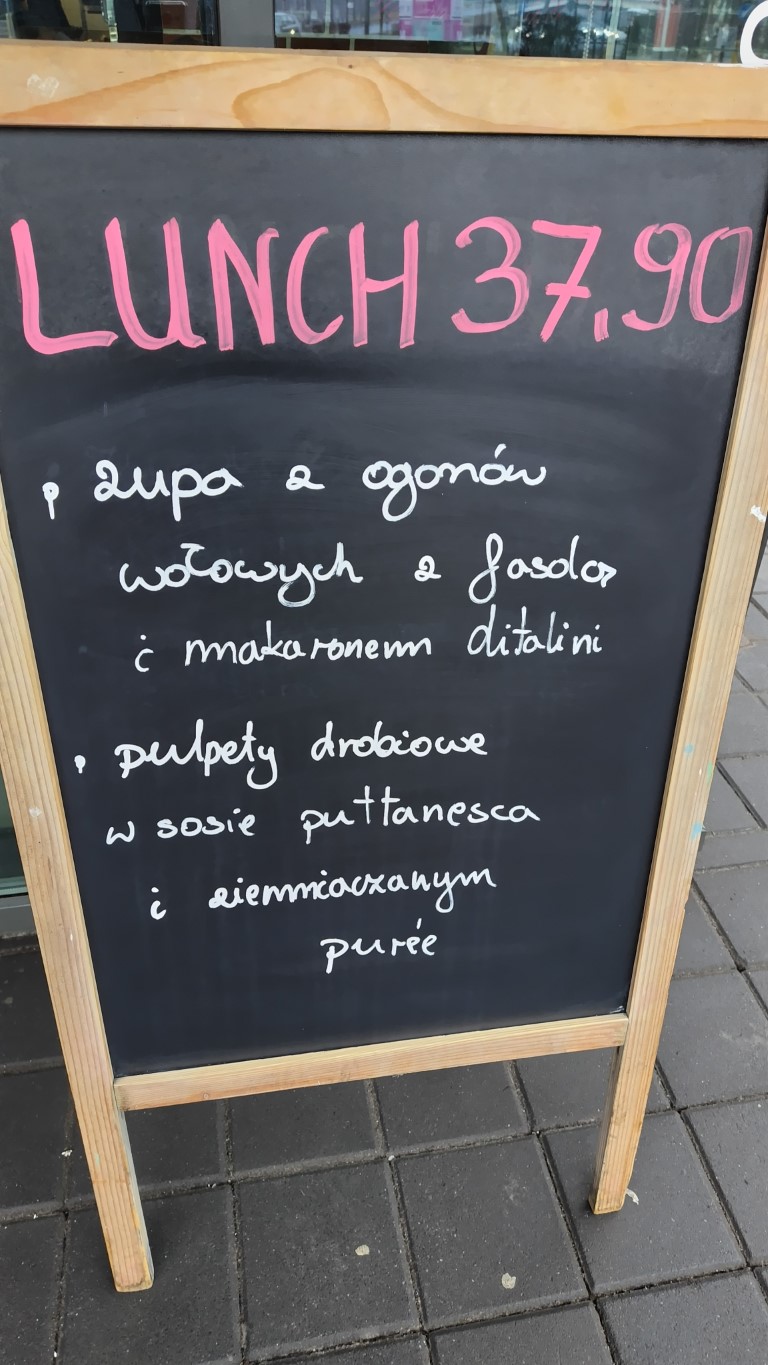 LUNCH 37.90
• zupa z ogonów
wołowych z fasolą
i makaronem ditalini
• pulpety drobiowe
w sosie puttanesca
i ziemniaczanym
purée